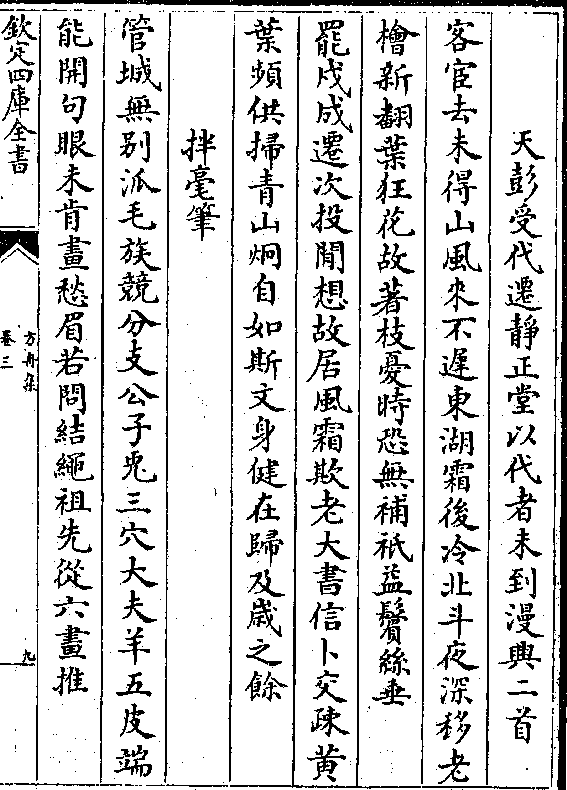 天彭受代遷靜正堂以代者未到漫興二首
客宦去未得山風來不遲東湖霜後冷北斗夜深移老
檜新翻葉狂花故著枝憂時恐無補祇益鬢絲垂
罷戍成遷次投閒想故居風霜欺老大書信卜交疎黄
葉頻供掃青山炯自如斯文身健在歸及歳之餘
拌毫筆
管城無别派毛族競分支公子兎三穴大夫羊五皮端
能開句眼未肯畫愁眉若問結繩祖先從六畫推
欽定四庫全書
方舟集
卷三
九